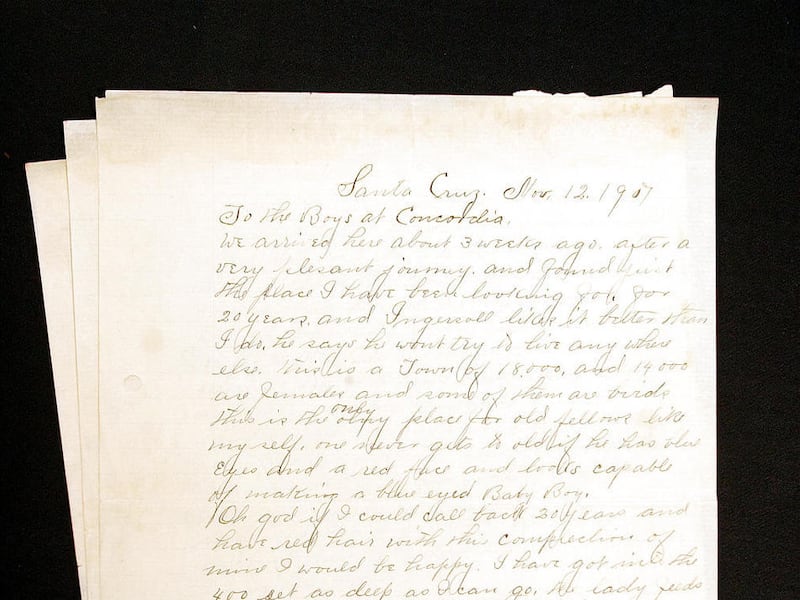 Santa Cruz. Nov. 12. 1907
To the Boys at Concordia.
We arrived here about 3 weeks ago. after a
very plesant journey. and found just
the place I have been looking for. for
20 years. and Ingersoll likes it better than
I do. he says he wont try to live any where
else. this is a Town of 18000. and 14000
are females and some of them are birds
this is the only place for old fellows like
my self. one never gets to old if he has blue
Eyes and a red face and looks capable
of making a blue eyed Baby Boy.
Oh god if I could call back 20 years and
have red hair with this complection of
mine I would be happy. I have got into the
400 set as deep as I can go. the lady feeds